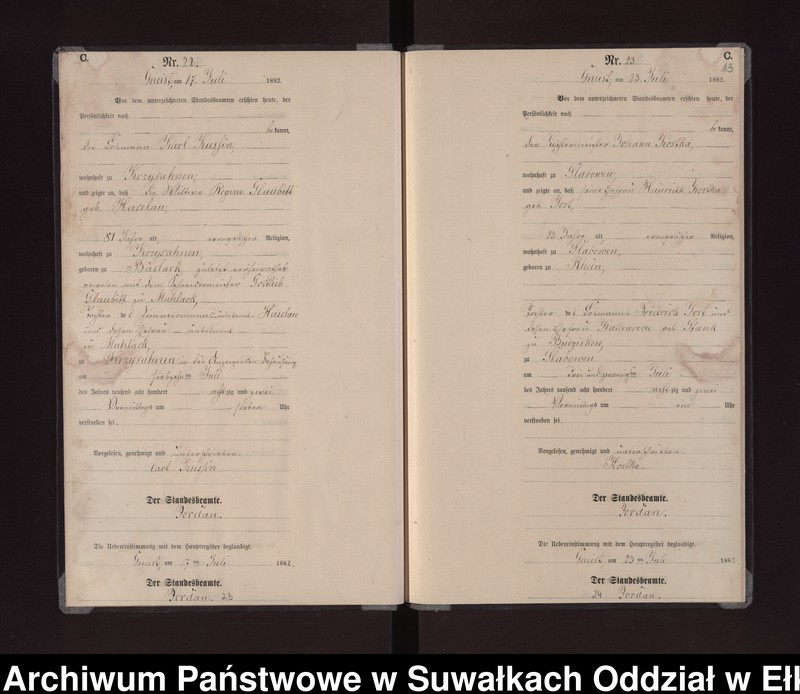 C.
Nr. 22.
Gneist, am 17. Juli 1882.
Vor dem unterzeichneten Standesbeamten erschien heute, der
Persönlichkeit nach
bekannt,
der Losmann Karl Kussin,
wohnhaft zu Krzysahnen,
und zeigte an, daß die Wittwe Regine Glaubitt
geb. Haselau,
81 Jahre alt, evangelischer Religion,
wohnhaft zu Krzysahnen,
geboren zu Bäslack, zuletzt verheirathet
gewesen mit dem Schneidermeister Gottlieb
Glaubitt zu Muhlack,
Tochter des Haselau
und dessen Ehefrau – unbekannt –
zu Muhlack,
zu Krzysahnen in des Anzeigenden Behausung
am siebzehnten Juli
des Jahres tausend acht hundert achtzig und zwei
Vormittags um sieben Uhr
verstorben sei.
Vorgelesen, genehmigt und unterschrieben.
Carl Kussin
Der Standesbeamte.
Jordan.
Die Uebereinstimmung mit dem Hauptregister beglaubigt
Gneist, am 17ten Juli 1882.
Der Standesbeamte.
Jordan. 23
C.
23
Nr. 23.
Gneist, am 23. Juli 1882.
Vor dem unterzeichneten Standesbeamten erschien heute, der
Persönlichkeit nach
bekannt,
der Tischlermeister Johann Kostka,
wohnhaft zu Slabowen,
und zeigte an, daß seine Ehefrau Kostka
geb. Jost,
23 Jahre alt, evangelischer Religion,
wohnhaft zu Slabowen,
geboren zu Rhein,
Tochter des Losmanns Friedrich Jost und
dessen Ehefrau Katharine geb.
zu
zu Slabowen
am drei und zwanzigten Juli
des Jahres tausend acht hundert achtzig und zwei
Vormittags um ein Uhr
verstorben sei.
Vorgelesen, genehmigt und unterschrieben.
Kostka.
Der Standesbeamte.
Jordan.
Die Uebereinstimmung mit dem Hauptregister beglaubigt.
Gneist, am 23ten Juli 1882
Der Standesbeamte.
24 Jordan.
Archiwum Państwowe w Suwałkach Oddział w Ełk